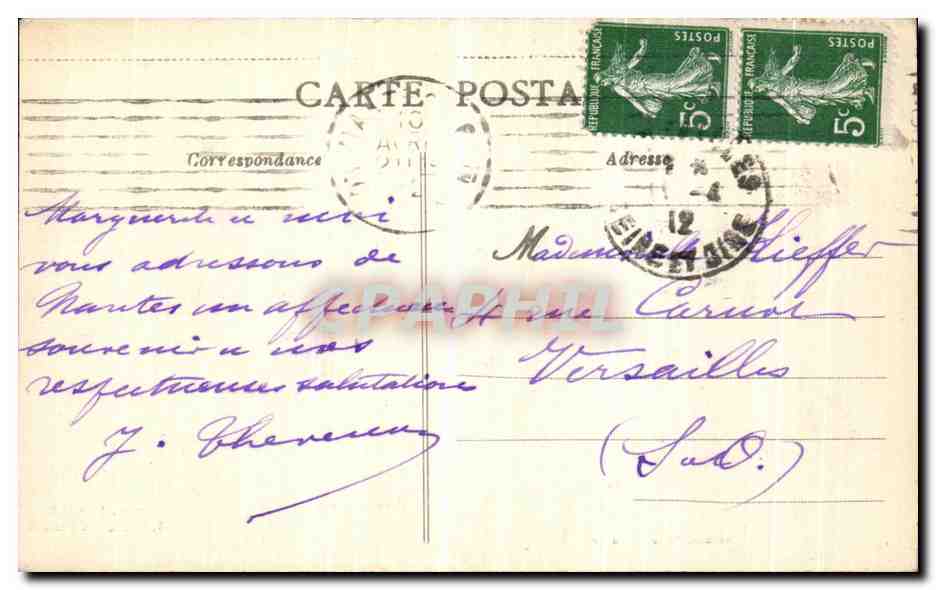 CARTE POSTA
RÉPUBLIQUE FRANÇAISE
POSTES
5c
RÉPUBLIQUE FRANÇAISE
POSTES
5c
Correspondance
Adresse
4
12
LOIRE
Marguerite et moi
vous adressons de
Nantes un affectueux
souvenir et nos
respectueuses salutations
J.
Mademoiselle Kieffer
4 rue Carnot
Versailles
(S et O.)
CPAPHIL